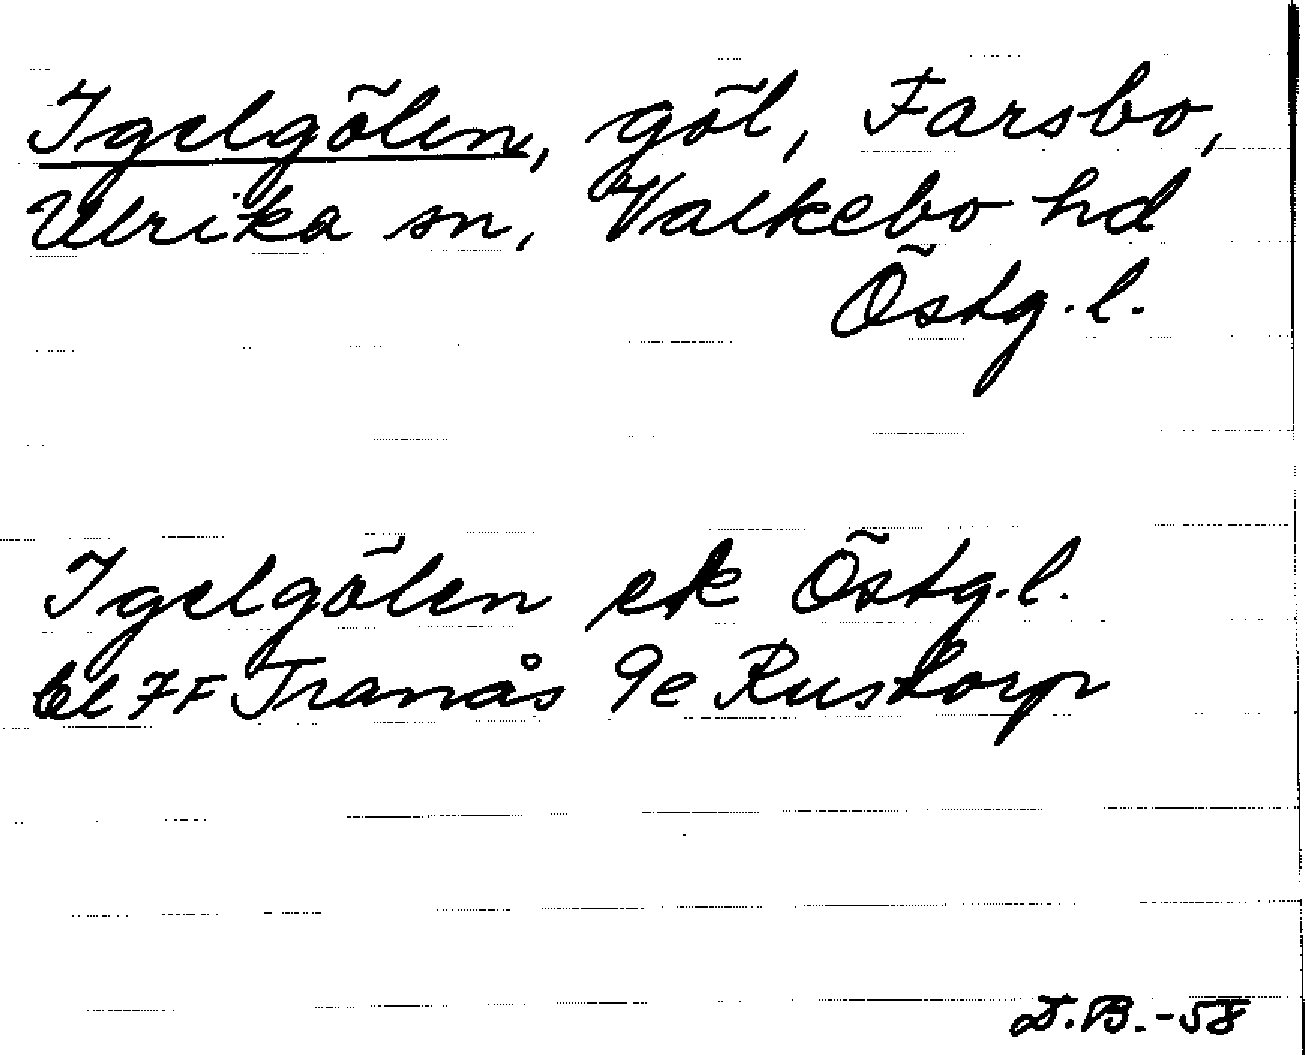 Igelgölen, göl, Farsbo,
Ulrika sn, Valkebo hd
Östg. l.
Igelgölen ek Östg. l.
bl 7F Tranås 9e Rustorp
D.B. -58